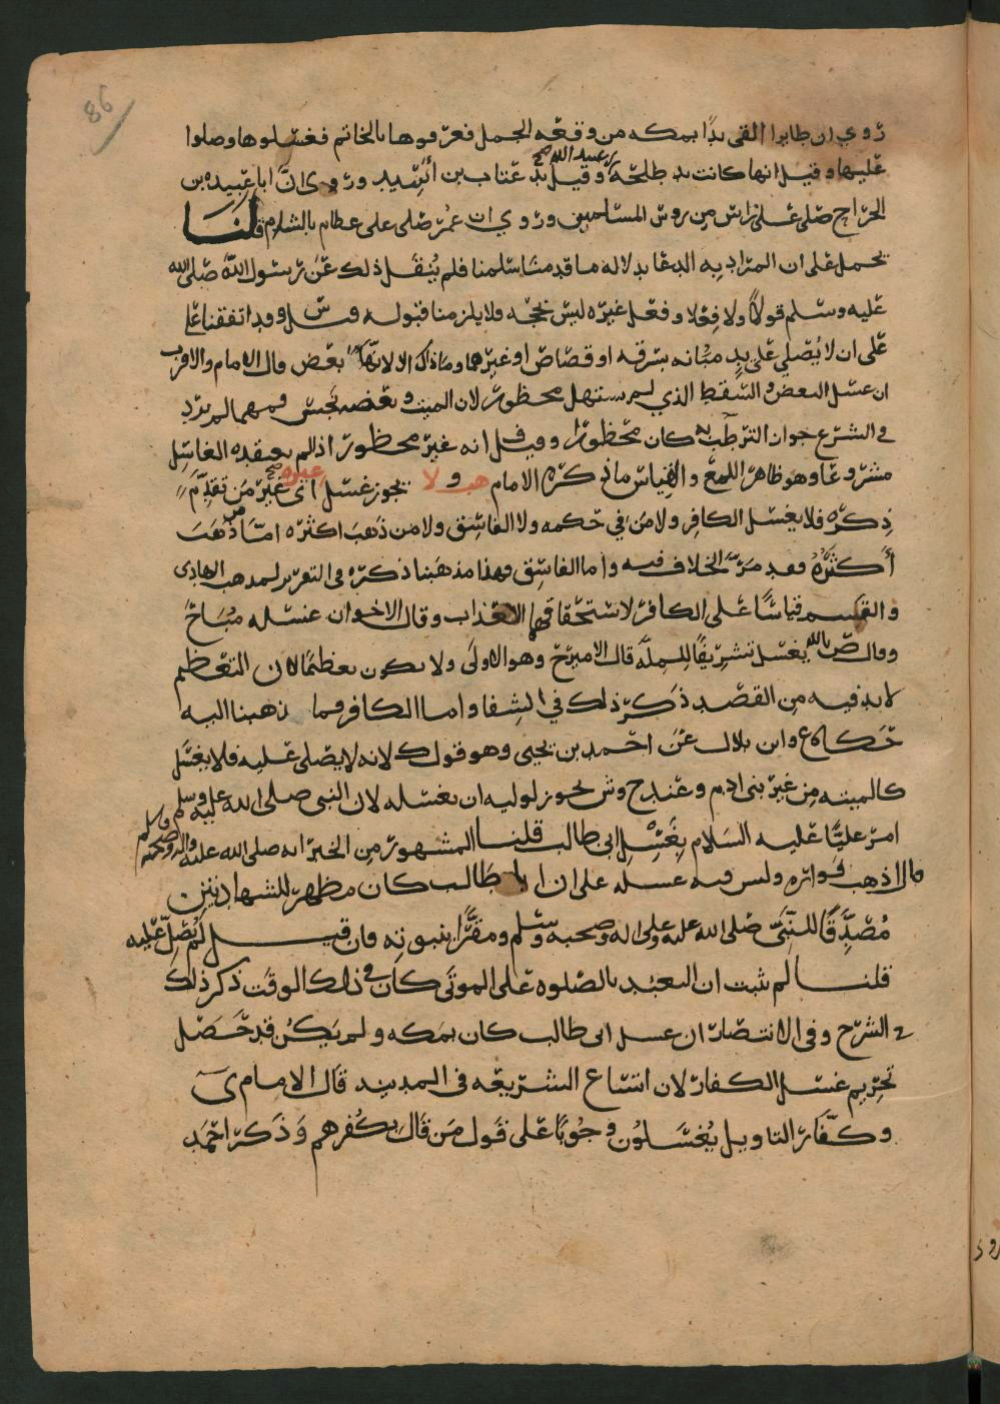 86
روي ان طايرا القى يدًا بمكه من وقعه الجمل فعرفوها بالخاتم فغسلوها وصلوا
عليها وقيل انها كانت يد طلحه بن عبيد الله صح وقيل يد عتاب بن اسيد وروى انّ ابا عبيده بن
الجراح صلى على راس من روس المسلمين وروي ان عمر صلى على عظام بالشام قلنا
يحمل على ان المراد به الدعا بدلاله ما قدمنا سلمنا فلم يُنقل ذلك عن رسول الله صلى الله
عليه وسلم قولًا ولا فعلا وفعل غيره ليس بحجه ولا يلزمنا قبوله وقد اتفقنا
على ان لا يُصلي على يدٍ مبانه بسرقه او قصاص او غيرهما وما ذاك الا لانها بعض وال الامام والاقرب
ان غسل البعض والسقط الذي لم يستهل محظور لان الميت وبعضه نجس ومهما لم يرد
في الشرع جواز الترطب به كان محظورا وقيل انه غير محظور اذا لم يعتقده الغاسل
مشروعا وهو ظاهر اللمع والقياس ما ذكره الامام هب ولا يجوز غسل غيره صح اى غير من تقدّم
ذكره فلا يغسل الكافر ولا من في حكمه ولا الفاسق ولا من ذهب اكثره امّا من ذهب
أكثرهُ فقد مرّ الخلاف فيه واما الفاسق فهذا مذهبنا ذكره في التحرير لمذهب الهادى
والقسم قياسًا على الكافر لاستحقاقهما العذاب وقال الاخوان غسله مُباح
وقال ص بالله يغسل تشريفًا للملّه قال الامير ح وهو الاولى ولا يكون تعظيمًا لان التعظيم
لا بد فيه من القصد ذكر ذلك في الشفا واما الكافر فما ذهبنا اليه
حكاه ع وابن بلال عن احمد بن يحيى وهو قول ك لانه لا يصلى عليه فلا يغسل
كالميته من غير بنى ادم وعند ح وش يجوز لوليه ان يغسله لان النبى صلى الله عليه وسلم
امر عليًّا عليه السلام بغَسْل ابى طالب قلنا المشهور من الخبر انه صلى الله عليه واله وصحبه وسلم
قال اذهب فواره وليس فيه غسله على ان ابا طالب كان مظهر للشهادتين
مُصدّقًا للنّبىّ صلى الله عليه وعلى اله وصحبه وسلم ومقرًّا بنبوته فان قيل لم يُصلّ عليه
قلنا لم ثبت ان التعبد بالصلوه على الموتى كان في ذلك الوقت ذكر ذلك
في الشرح وفى الانتصار ان غسل ابى طالب كان بمكه ولم يكن قد حَصَل
تحريم غسل الكفار لان اتساع الشريعه فى المدينه قال الامام ى
وكفّار التاويل يُغسّلوُن وجوبًا على قول من قال بكُفرهم وَذكر احمد